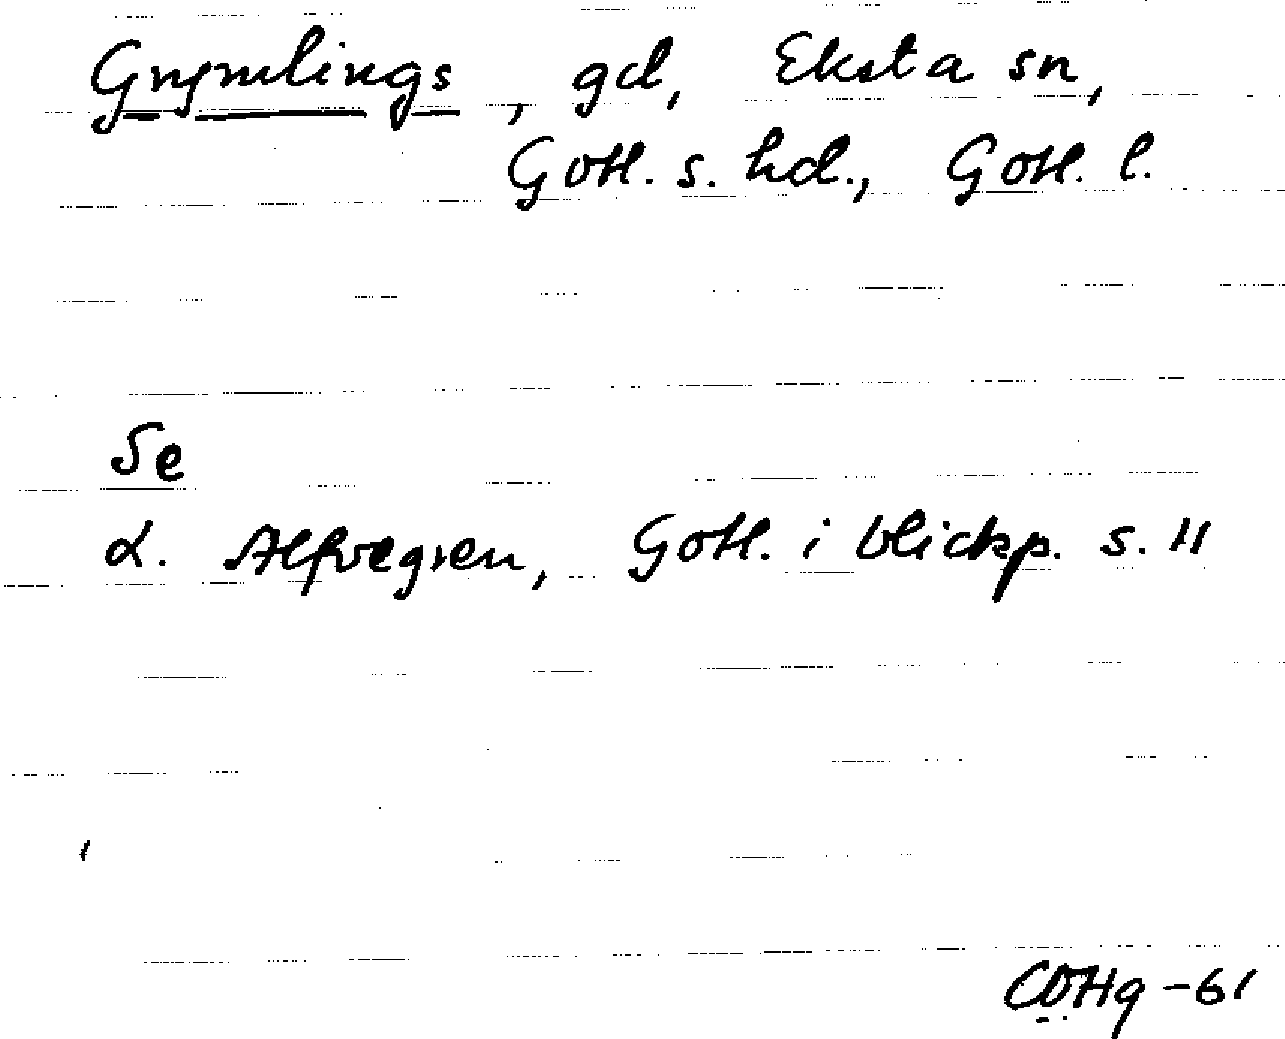 Grymlings, gd, Eksta sn,
Gotl. s. hd., Gotl. l.
Se
L. Alfvegren, Gotl. i blickp. s. 11
-61